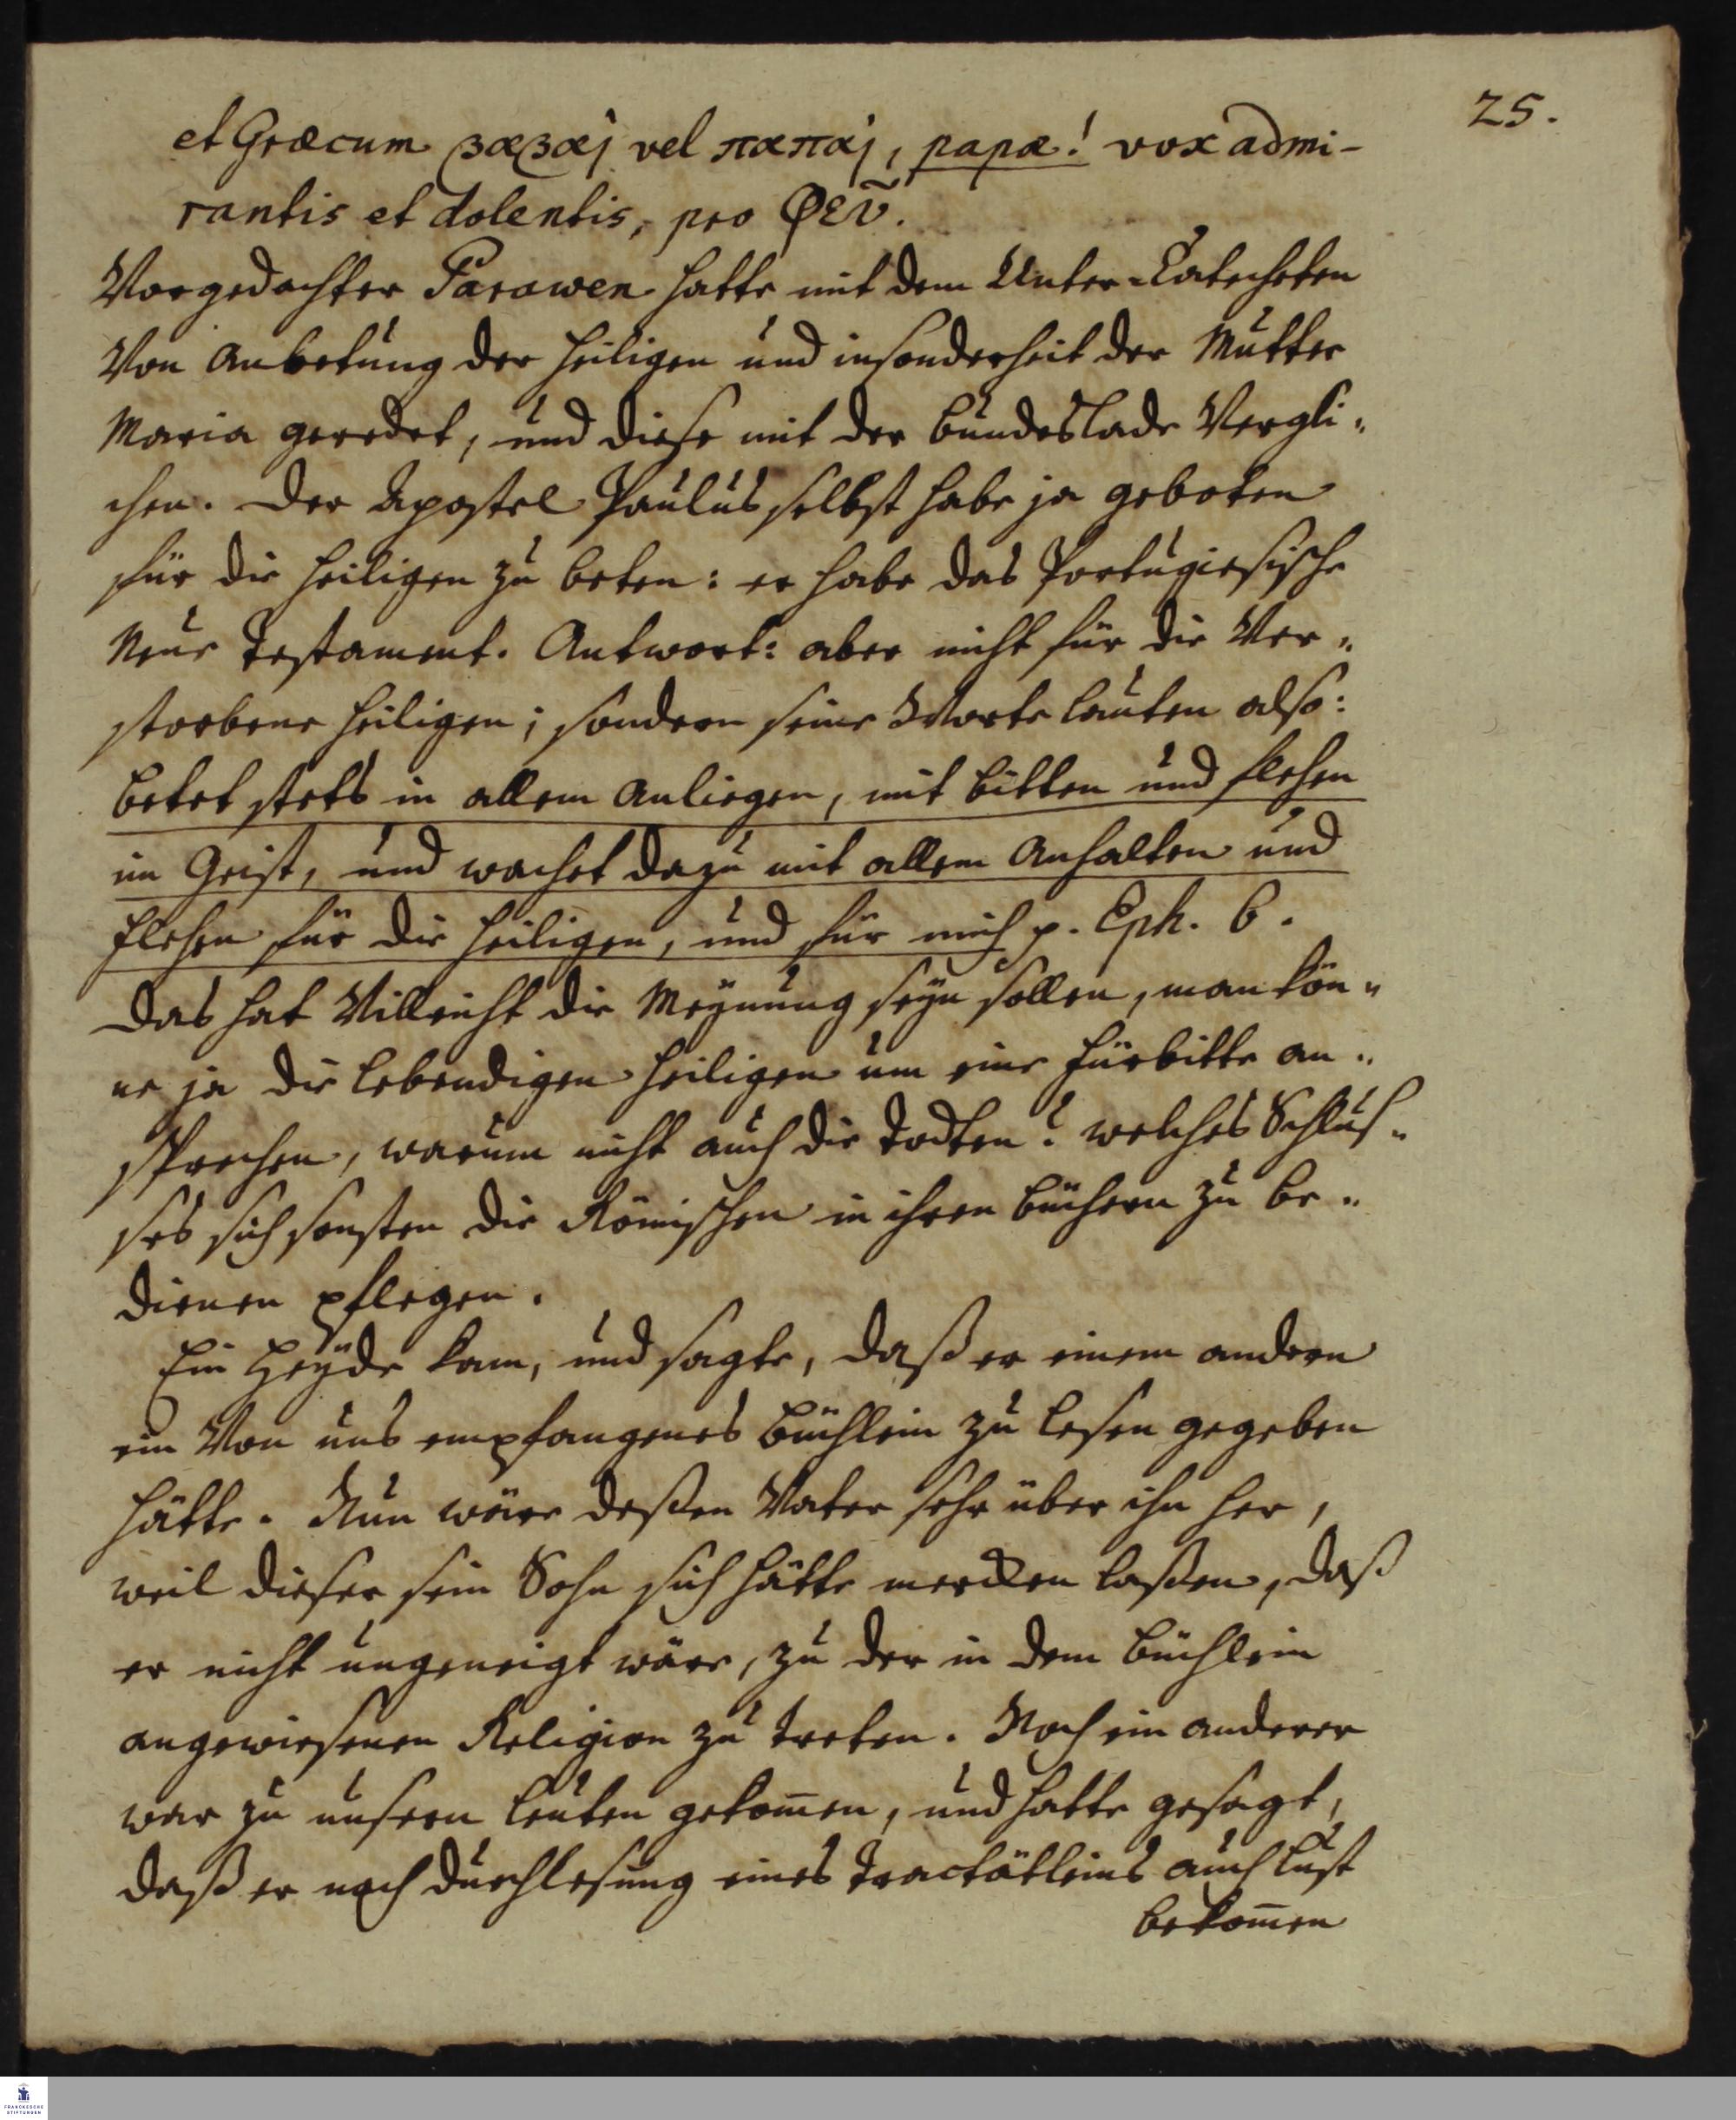 25.
et Græcum βαβαὶ vel παπαὶ, papæ! vox admi-
rantis et dolentis, pro φεῦ.
Vorgedachter Parawen hatte mit dem Unter-Catecheten
von Anbetung der Heiligen und insonderheit der Mutter
Maria geredet, und diese mit der Bundeslade vergli-
chen. Der Apostel Paulus selbst habe ja geboten
für die Heiligen zu beten: er habe das Portugiesische
Neue Testament. Antwort: aber nicht für die ver-
storbene Heiligen; sondern seine Worte lauten also:
betet stets in allem Anliegen, mit bitten und flehen
im Geist, und wachet dazu mit allem Anhalten und
flehen für die Heiligen, und für mich p. Eph. 6.
Das hat villeicht die Meynung seyn sollen, man kön-
ne ja die lebendigen Heiligen um eine Fürbitte an-
sprechen, warum nicht auch die todten? welches Schlus-
ses sich sonsten die Römischen in ihren Büchern zu be-
dienen pflegen.
Ein Heyde kam, und sagte, daß er einem andern
ein von uns empfangenes Büchlein zu lesen gegeben
hätte. Nun wäre deßen Vater sehr über ihn her,
weil dieser sein Sohn sich hätte mercken laßen, daß
er nicht ungeneigt wäre, zu der in dem Büchlein
angewiesenen Religion zu treten. Noch ein anderer
war zu unsern Leuten gekom̄en, und hatte gesagt,
daß er nach Durchlesung eines Tractätleins auch Lust
bekom̄en
FRANCKESCHE
STIFTUNGEN